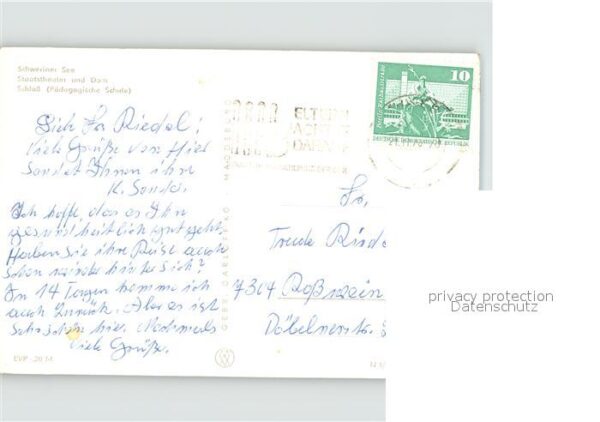 Schweriner See
Staatstheater und Dom
Schloß (Pädagogische Schule)
Fr. Riedel!
Viele Grüße von hier
sendet Ihnen ihre
K. Sander
Ich hoffe, das es Ihn
gesundheitlich gut geht.
Haben Sie ihre Reise auch
schon wieder hinter sich?
In 14 Tagen komme ich
auch zurück. Aber es ist
sehr schön hier. Nochmals
viele Grüße.
EVP -,20 M
GEBR. GARLOFF KG MAGDEBURG
ELTERN
10
DEUTSCHE DEMOKRATISCHE REPUBLIK
Fr.
Trude Riede
7304 Roßwein
Döbelnerstr.
privacy protection
Datenschutz